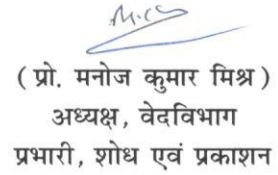 ( प्रो. मनोज कुमार मिश्र )
अध्यक्ष, वेदविभाग
प्रभारी, शोध एवं प्रकाशन